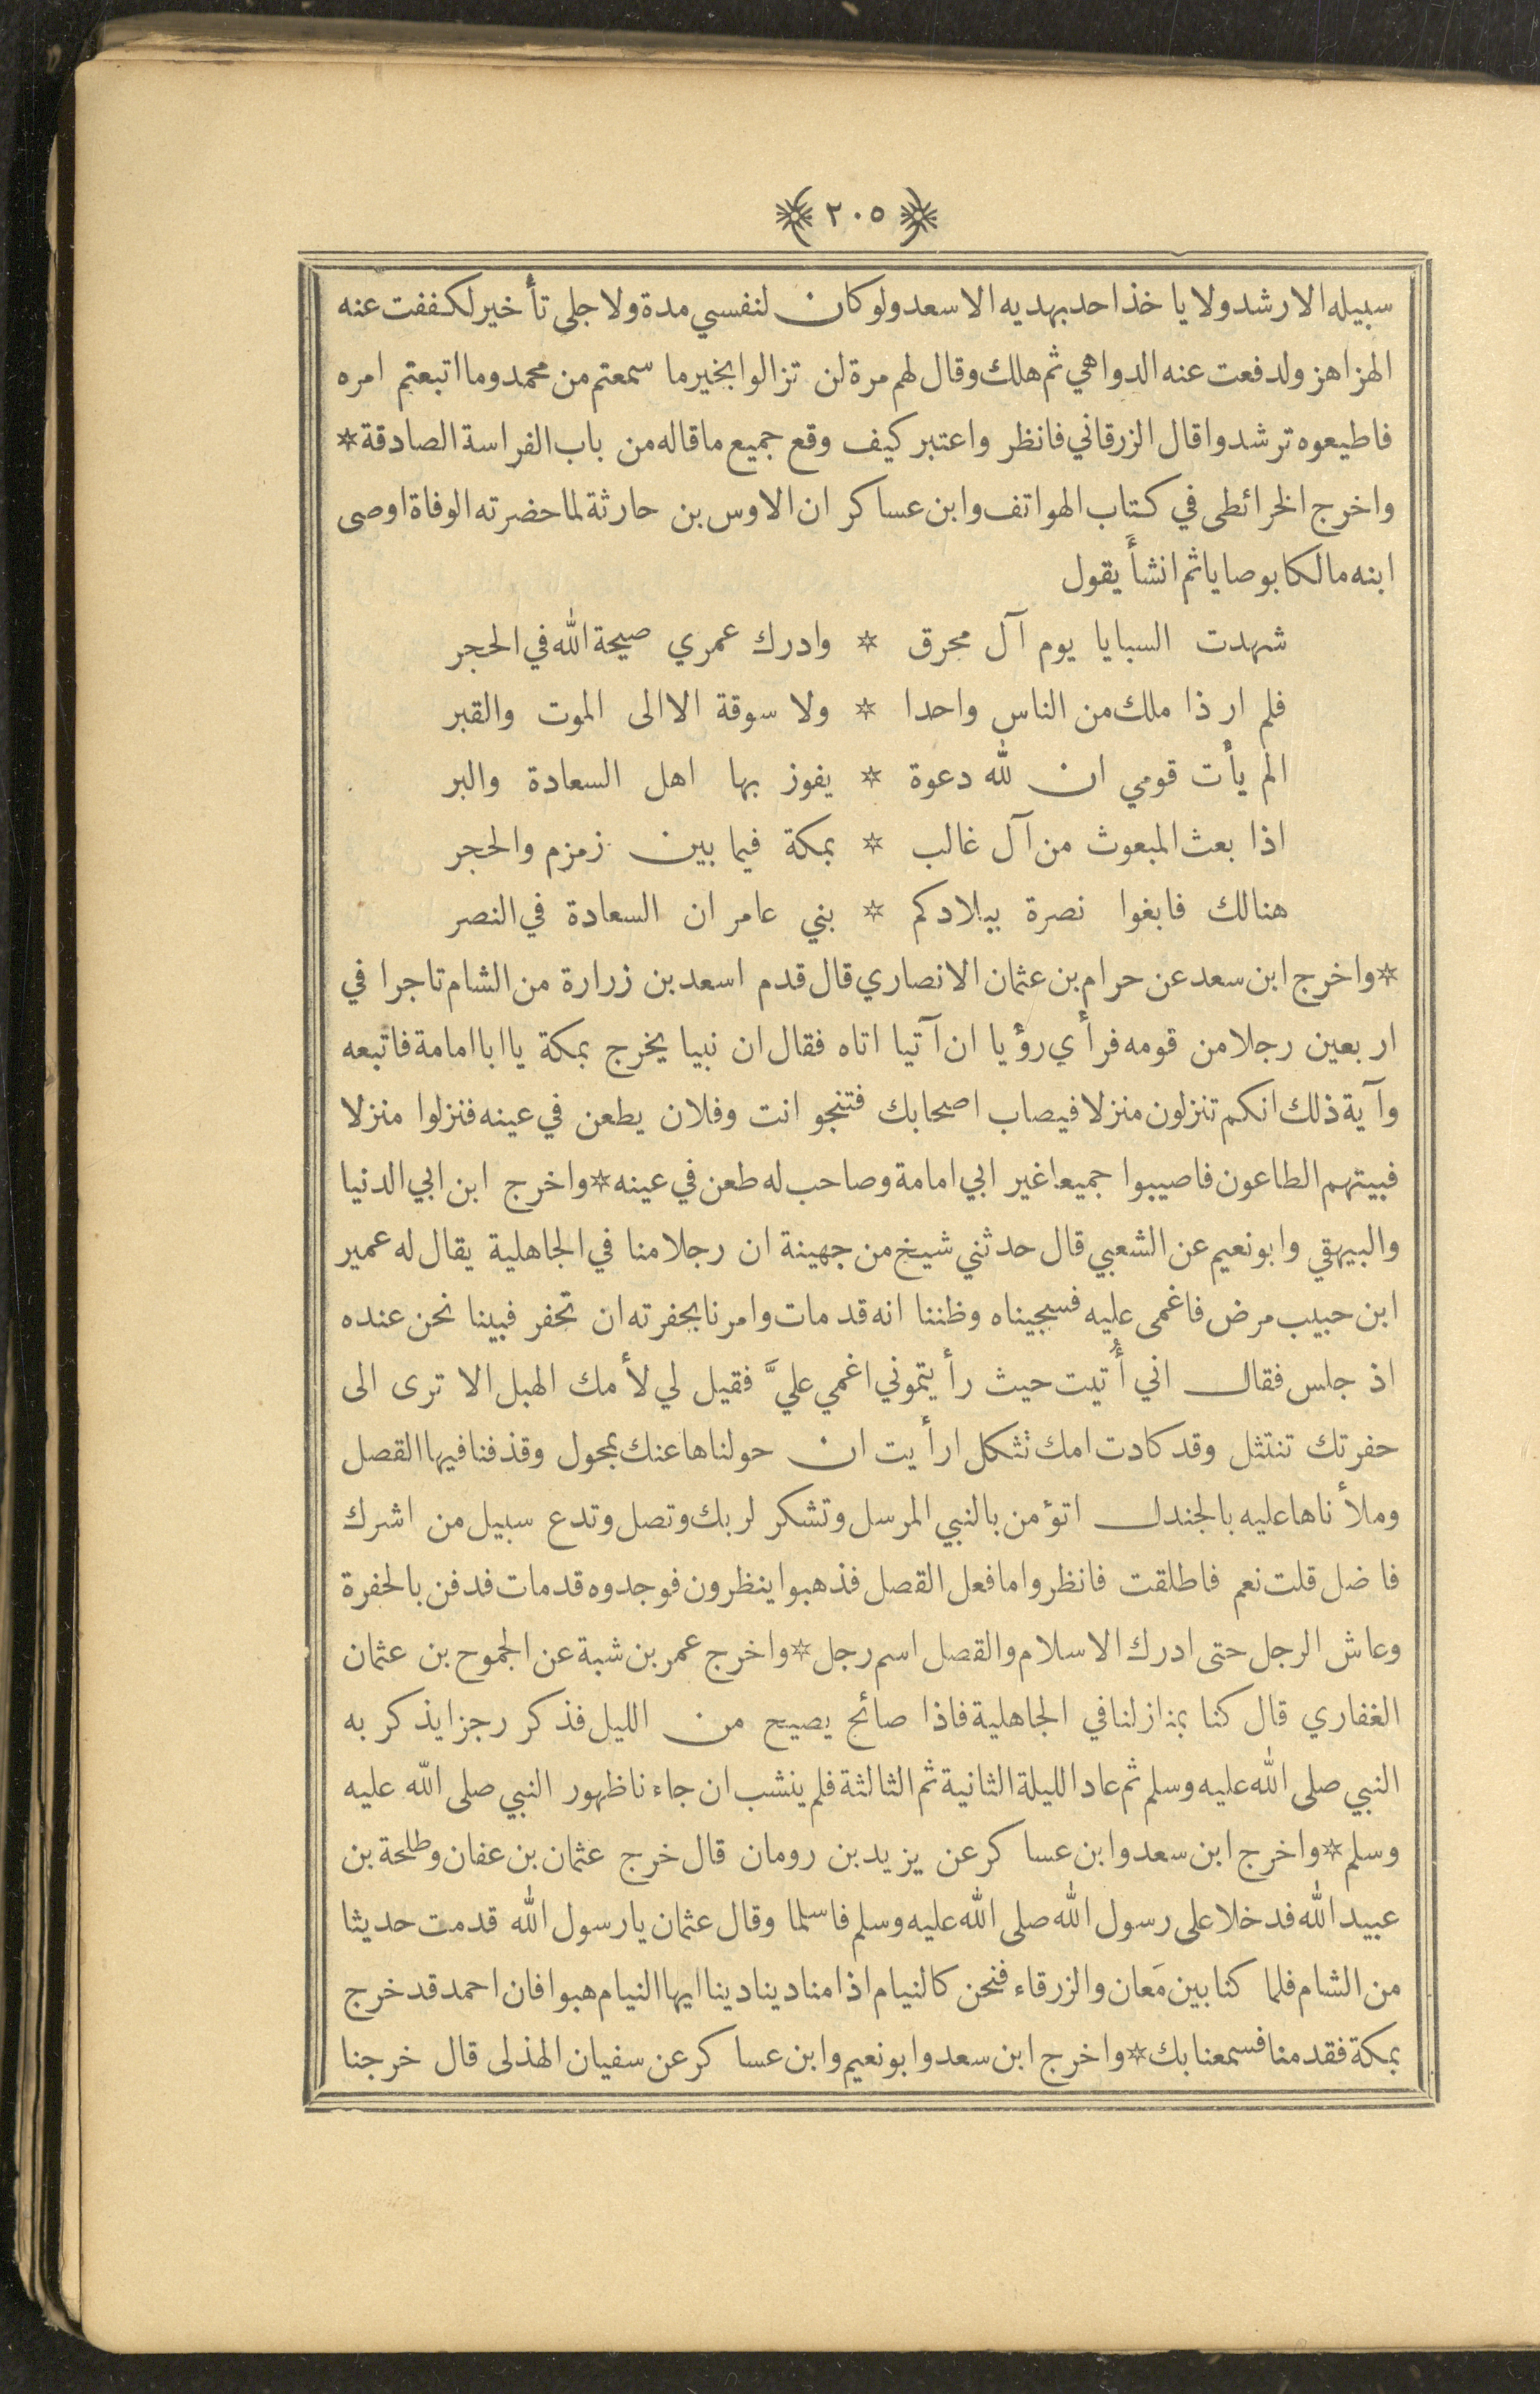 ٢٠٥
سبيله الا رشد ولا ياخذ احد بهديه الا سعد ولو كان لنفسي مدة ولاجلى تأخير لكففت عنه
الهزاهز ولدفعت عنه الدواهي ثم هلك وقال لهم مرة لن تزالوا بخير ما سمعتم من محمد وما اتبعتم امره
فاطيعوه ترشدوا قال الزرقاني فانظر واعتبر كيف وقع جميع ما قاله من باب الفراسة الصادقة *
واخرج الخرائطى في كتاب الهواتف وابن عساكر ان الاوس بن حارثة لما حضرته الوفاة اوصى
ابنه مالكا بوصايا ثم انشأ يقول
شهدت السبايا يوم آل محرق * وادرك عمري صيحة الله في الحجر
فلم ار ذا ملك من الناس واحدا * ولا سوقة الا الى الموت والقبر
الم يأت قومي ان لله دعوة * يفوز بها اهل السعادة والبر
اذا بعث المبعوث من آل غالب * بمكة فيما بين زمزم والحجر
هنالك فابغوا نصرة ببلادكم * بني عامر ان السعادة في النصر
* واخرج ابن سعد عن حرام بن عثمان الانصاري قال قدم اسعد بن زرارة من الشام تاجرا في
اربعين رجلا من قومه فرأى رؤيا ان آتيا اتاه فقال ان نبيا يخرج بمكة يا ابا امامة فاتبعه
وآية ذلك انكم تنزلون منزلا فيصاب اصحابك فتنجو انت وفلان يطعن في عينه فنزلوا منزلا
فبيتهم الطاعون فاصيبوا جميعا غير ابي امامة وصاحب له طعن في عينه * واخرج ابن ابي الدنيا
والبيهقي وابو نعيم عن الشعبي قال حدثني شيخ من جهينة ان رجلا منا في الجاهلية يقال له عمير
ابن حبيب مرض فاغمى عليه فسجيناه وظننا انه قد مات وامرنا بحفرته ان تحفر فبينا نحن عنده
اذ جلس فقال اني أُتيت حيث رأيتموني اغمي عليَّ فقيل لي لأمك الهبل الا ترى الى
حفرتك تنتثل وقد كادت امك تثكل ارأيت ان حولناها عنك بمحول وقذفنا فيها القصل
وملأناها عليه بالجندل اتؤمن بالنبي المرسل وتشكر لربك وتصل وتدع سبيل من اشرك
فاضل قلت نعم فاطلقت فانظروا ما فعل القصل فذهبوا ينظرون فوجدوه قد مات فدفن بالحفرة
وعاش الرجل حتى ادرك الاسلام والقصل اسم رجل * واخرج عمر بن شبة عن الجموح بن عثمان
الغفاري قال كنا بمنازلنا في الجاهلية فاذا صائح يصيح من الليل فذكر رجزا يذكر به
النبي صلى الله عليه وسلم ثم عاد الليلة الثانية ثم الثالثة فلم ينشب ان جاءنا ظهور النبي صلى الله عليه
وسلم * واخرج ابن سعد وابن عساكر عن يزيد بن رومان قال خرج عثمان بن عفان وطلحة بن
عبيد الله فدخلا على رسول الله صلى الله عليه وسلم فاسلما وقال عثمان يا رسول الله قدمت حديثا
من الشام فلما كنا بين مَعان والزرقاء فنحن كالنيام اذا مناد ينادينا ايها النيام هبوا فان احمد قد خرج
بمكة فقدمنا فسمعنا بك * واخرج ابن سعد وابو نعيم وابن عساكر عن سفيان الهذلى قال خرجنا